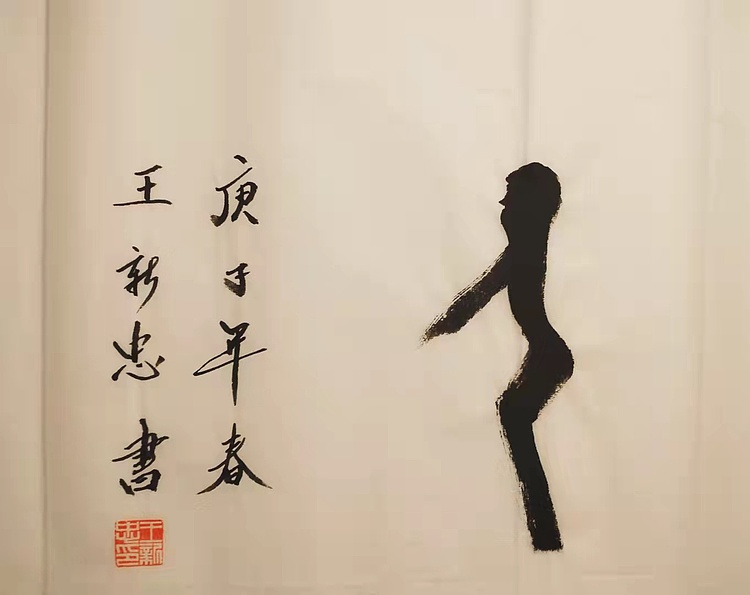 人
庚子年春
王新忠書
王新忠印